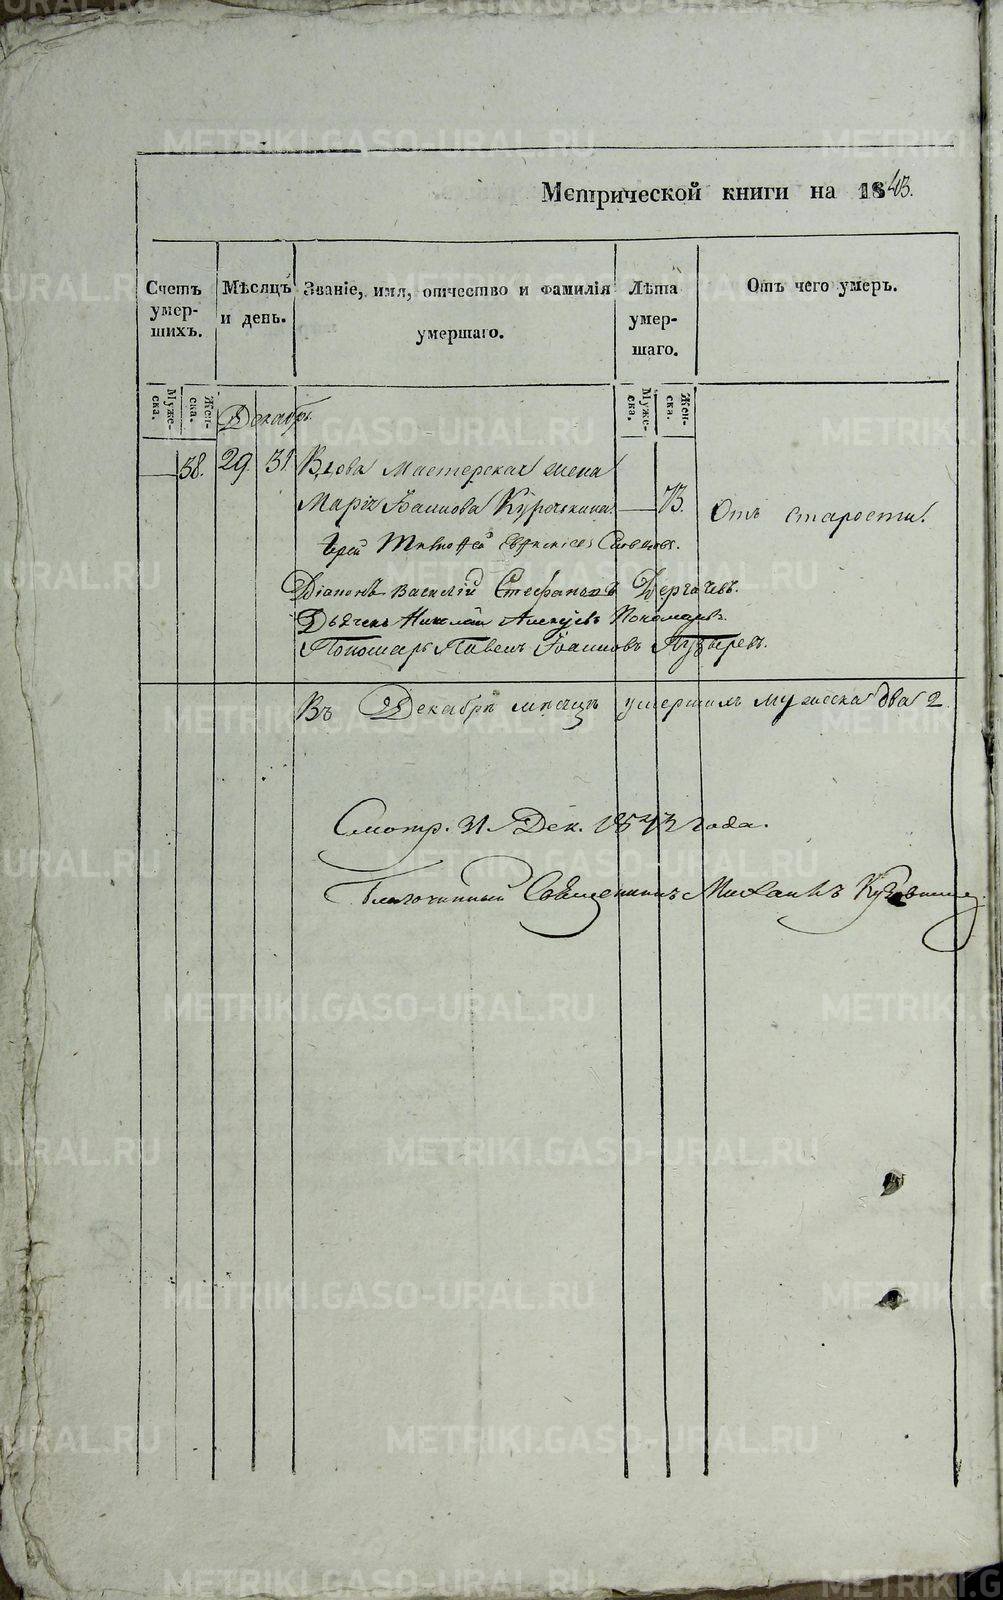 Метрической книги на 1843.
Счетъ умер-шихъ.
Мѣсяцъ и день.
Званіе, имя, отчество и фамилія умершаго.
Лѣта умер-шаго.
Отъ чего умеръ.
Муже-ска.
Жен-ска.
Муже-ска.
Жен-ска.
Декабрь.
58. 29. 31 Вдова мастерская жена
Марія Іоаннова Курочкина. 73. Отъ старости.
Іерей Тимоѳей
Діаконъ Василій Стефановъ Дергачевъ.
Дьячекъ Николай Алексѣевъ Пономаревъ.
Пономарь Павелъ Іоанновъ Пузыревъ.
Въ Декабрѣ мѣсяцѣ умершихъ мужеска два 2
Смотр. 31 Дек. 1843 года.
Благочинный Священникъ Михаилъ
METRIKI.GASO-URAL.RU